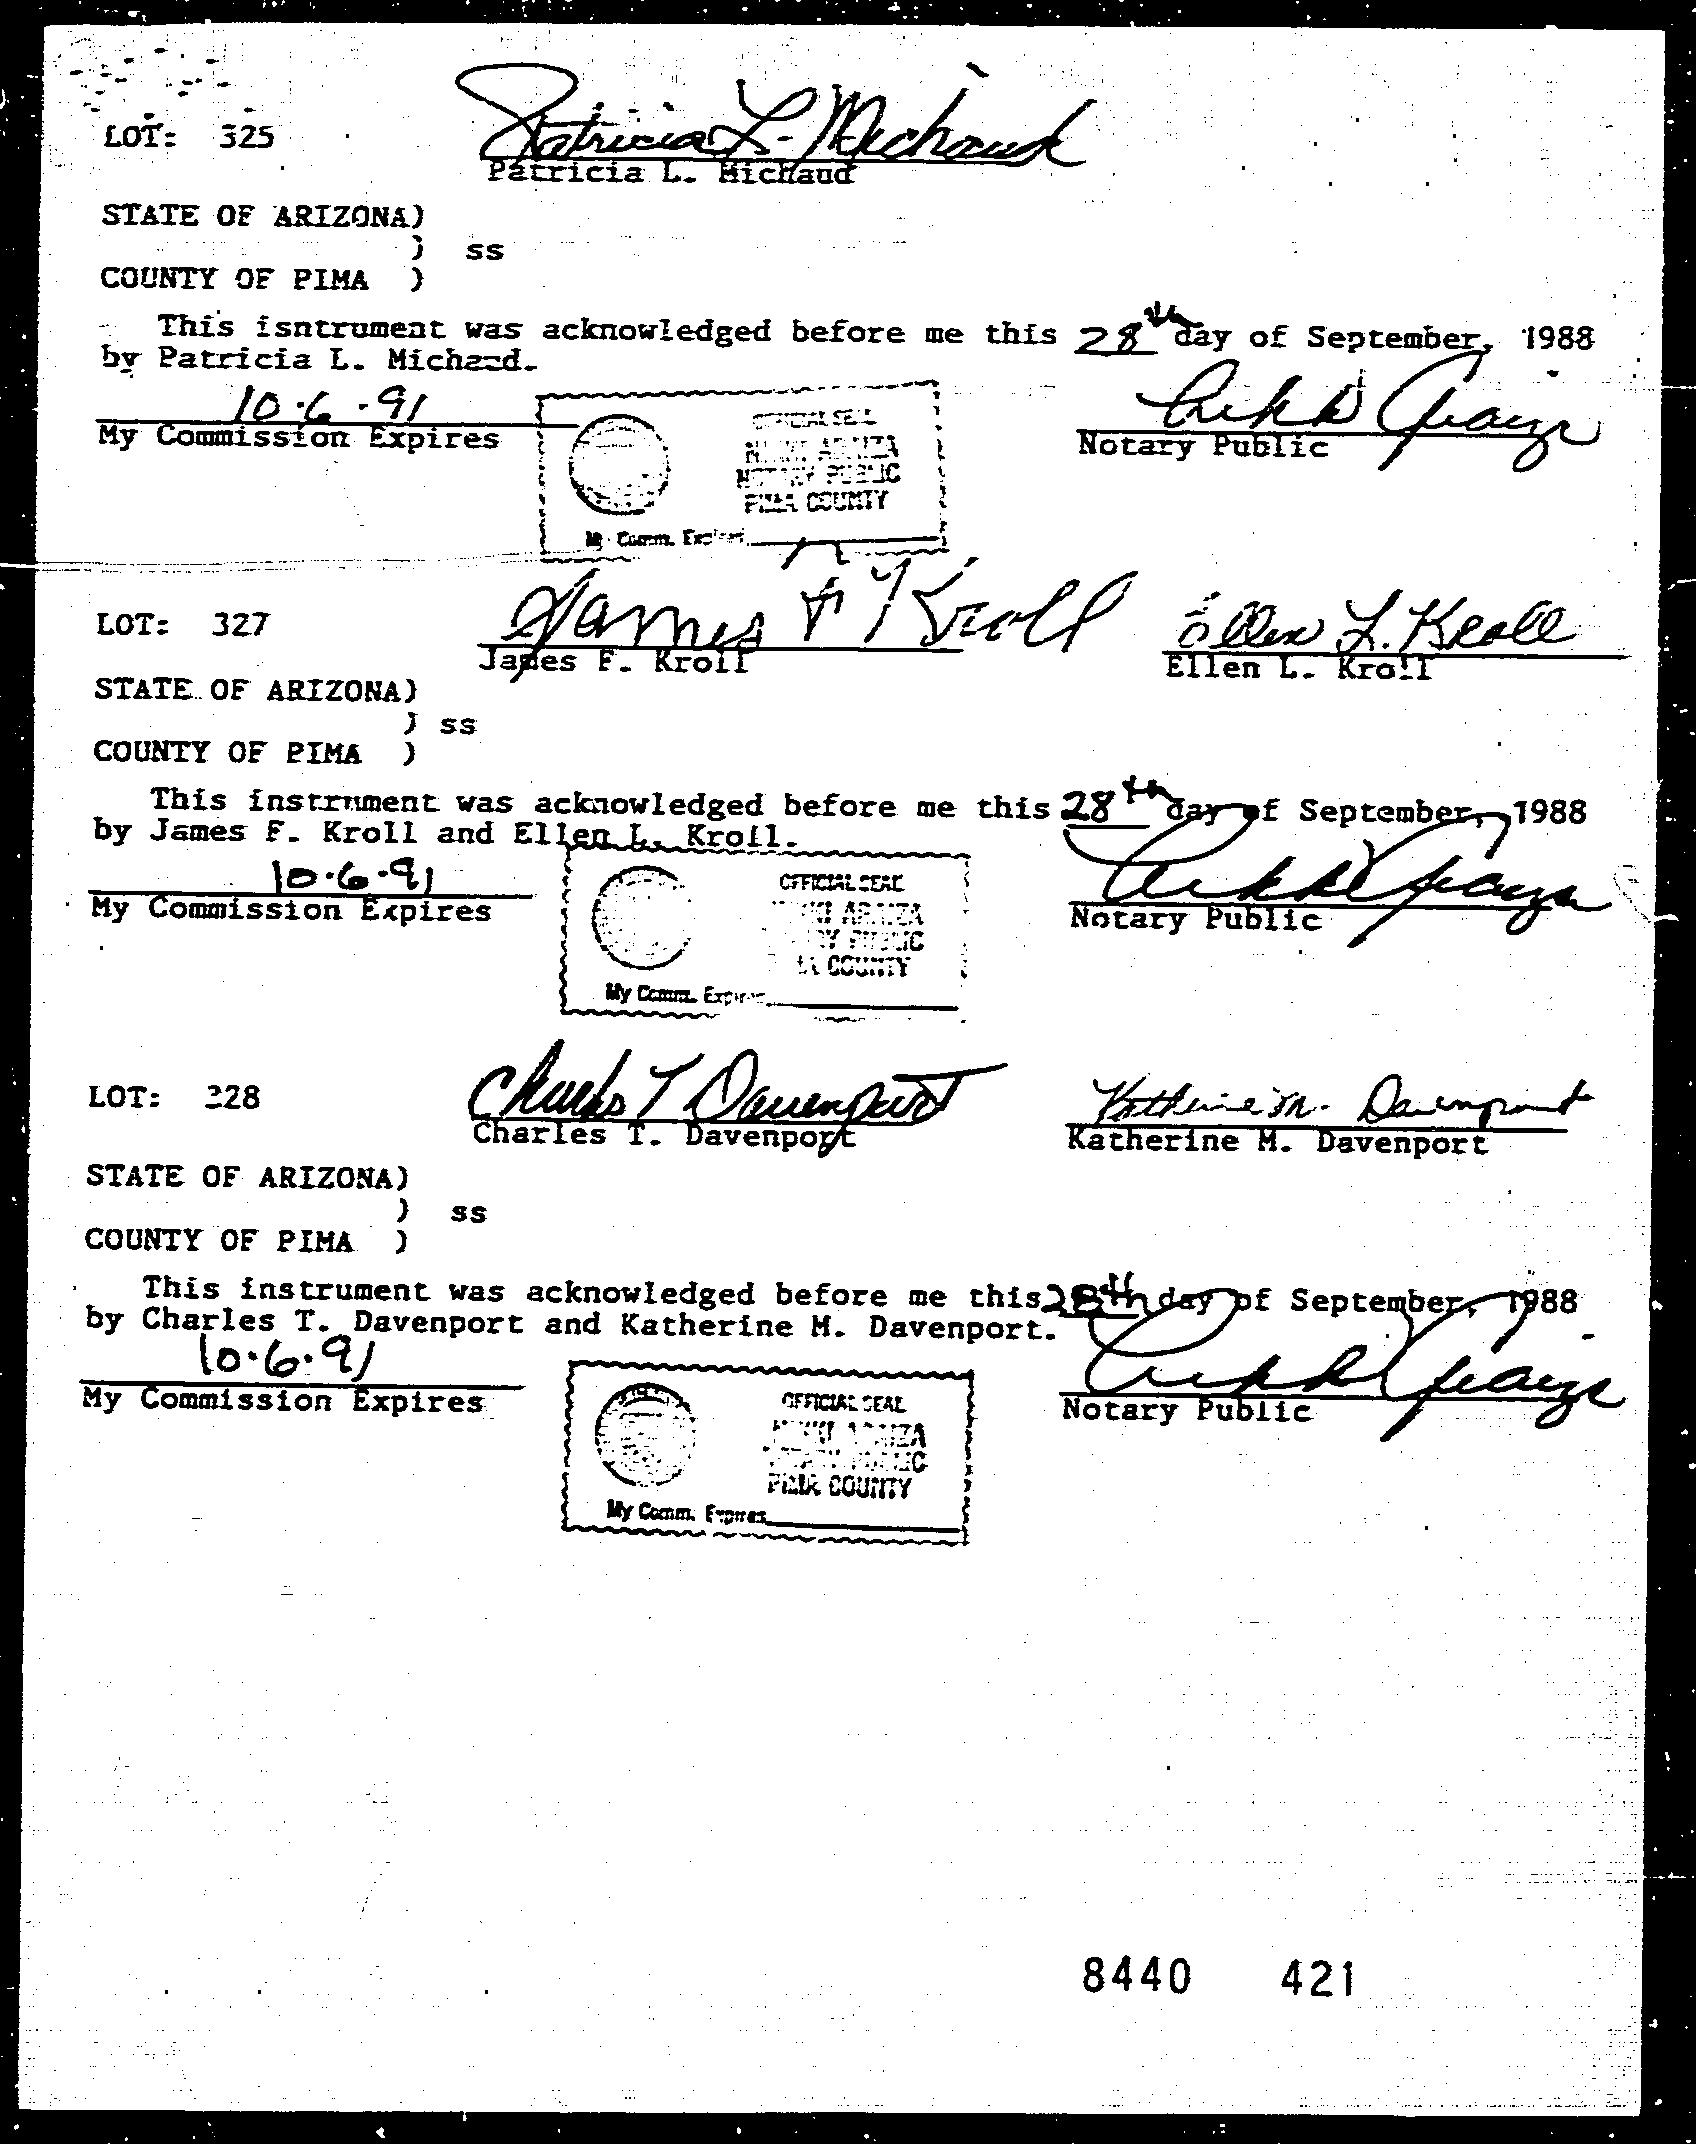 LOT: 325
Patricia L. Michaud
Patricia L. Michaud
STATE OF ARIZONA)
) ss
COUNTY OF PIMA )
This isntrument was acknowledged before me this 28th day of September, 1988
by Patricia L. Michaud.
10.6.91
My Commission Expires
Notary Public
OFFICIAL SEAL
ARAIZA
NOTARY PUBLIC
PIMA COUNTY
My Comm. Expires
LOT: 327
James F Kroll Ellen L. Kroll
James F. Kroll Ellen L. Kroll
STATE OF ARIZONA)
) ss
COUNTY OF PIMA )
This instrument was acknowledged before me this 28th day of September, 1988
by James F. Kroll and Ellen L. Kroll.
10.6.91
My Commission Expires
Notary Public
OFFICIAL SEAL
ARAIZA
PUBLIC
COUNTY
My Comm. Expires
LOT: 328
Charles T Davenport Katherine M. Davenport
Charles T. Davenport Katherine M. Davenport
STATE OF ARIZONA)
) ss
COUNTY OF PIMA )
This instrument was acknowledged before me this 28th day of September, 1988
by Charles T. Davenport and Katherine M. Davenport.
10.6.91
My Commission Expires
Notary Public
OFFICIAL SEAL
ARAIZA
PIMA COUNTY
My Comm. Expires
8440 421